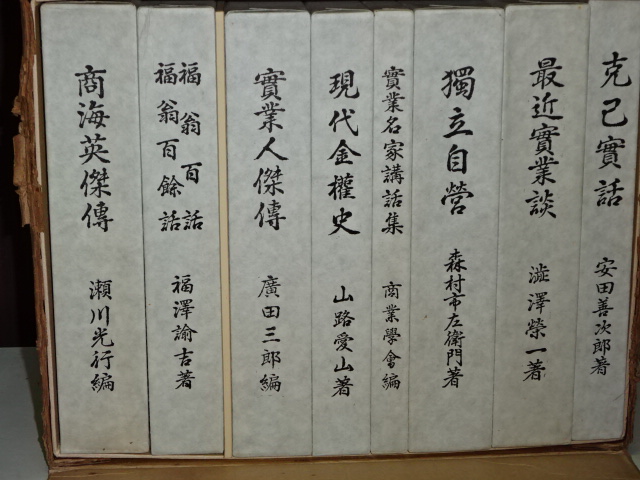 克己實話
安田善次郎著
最近實業談
澁澤榮一著
獨立自營
森村市左衞門著
實業名家講話集
商業學會編
現代金權史
山路愛山著
實業人傑傳
廣田三郎編
福翁百話
福翁百餘話
福澤諭吉著
商海英傑傳
瀬川光行編